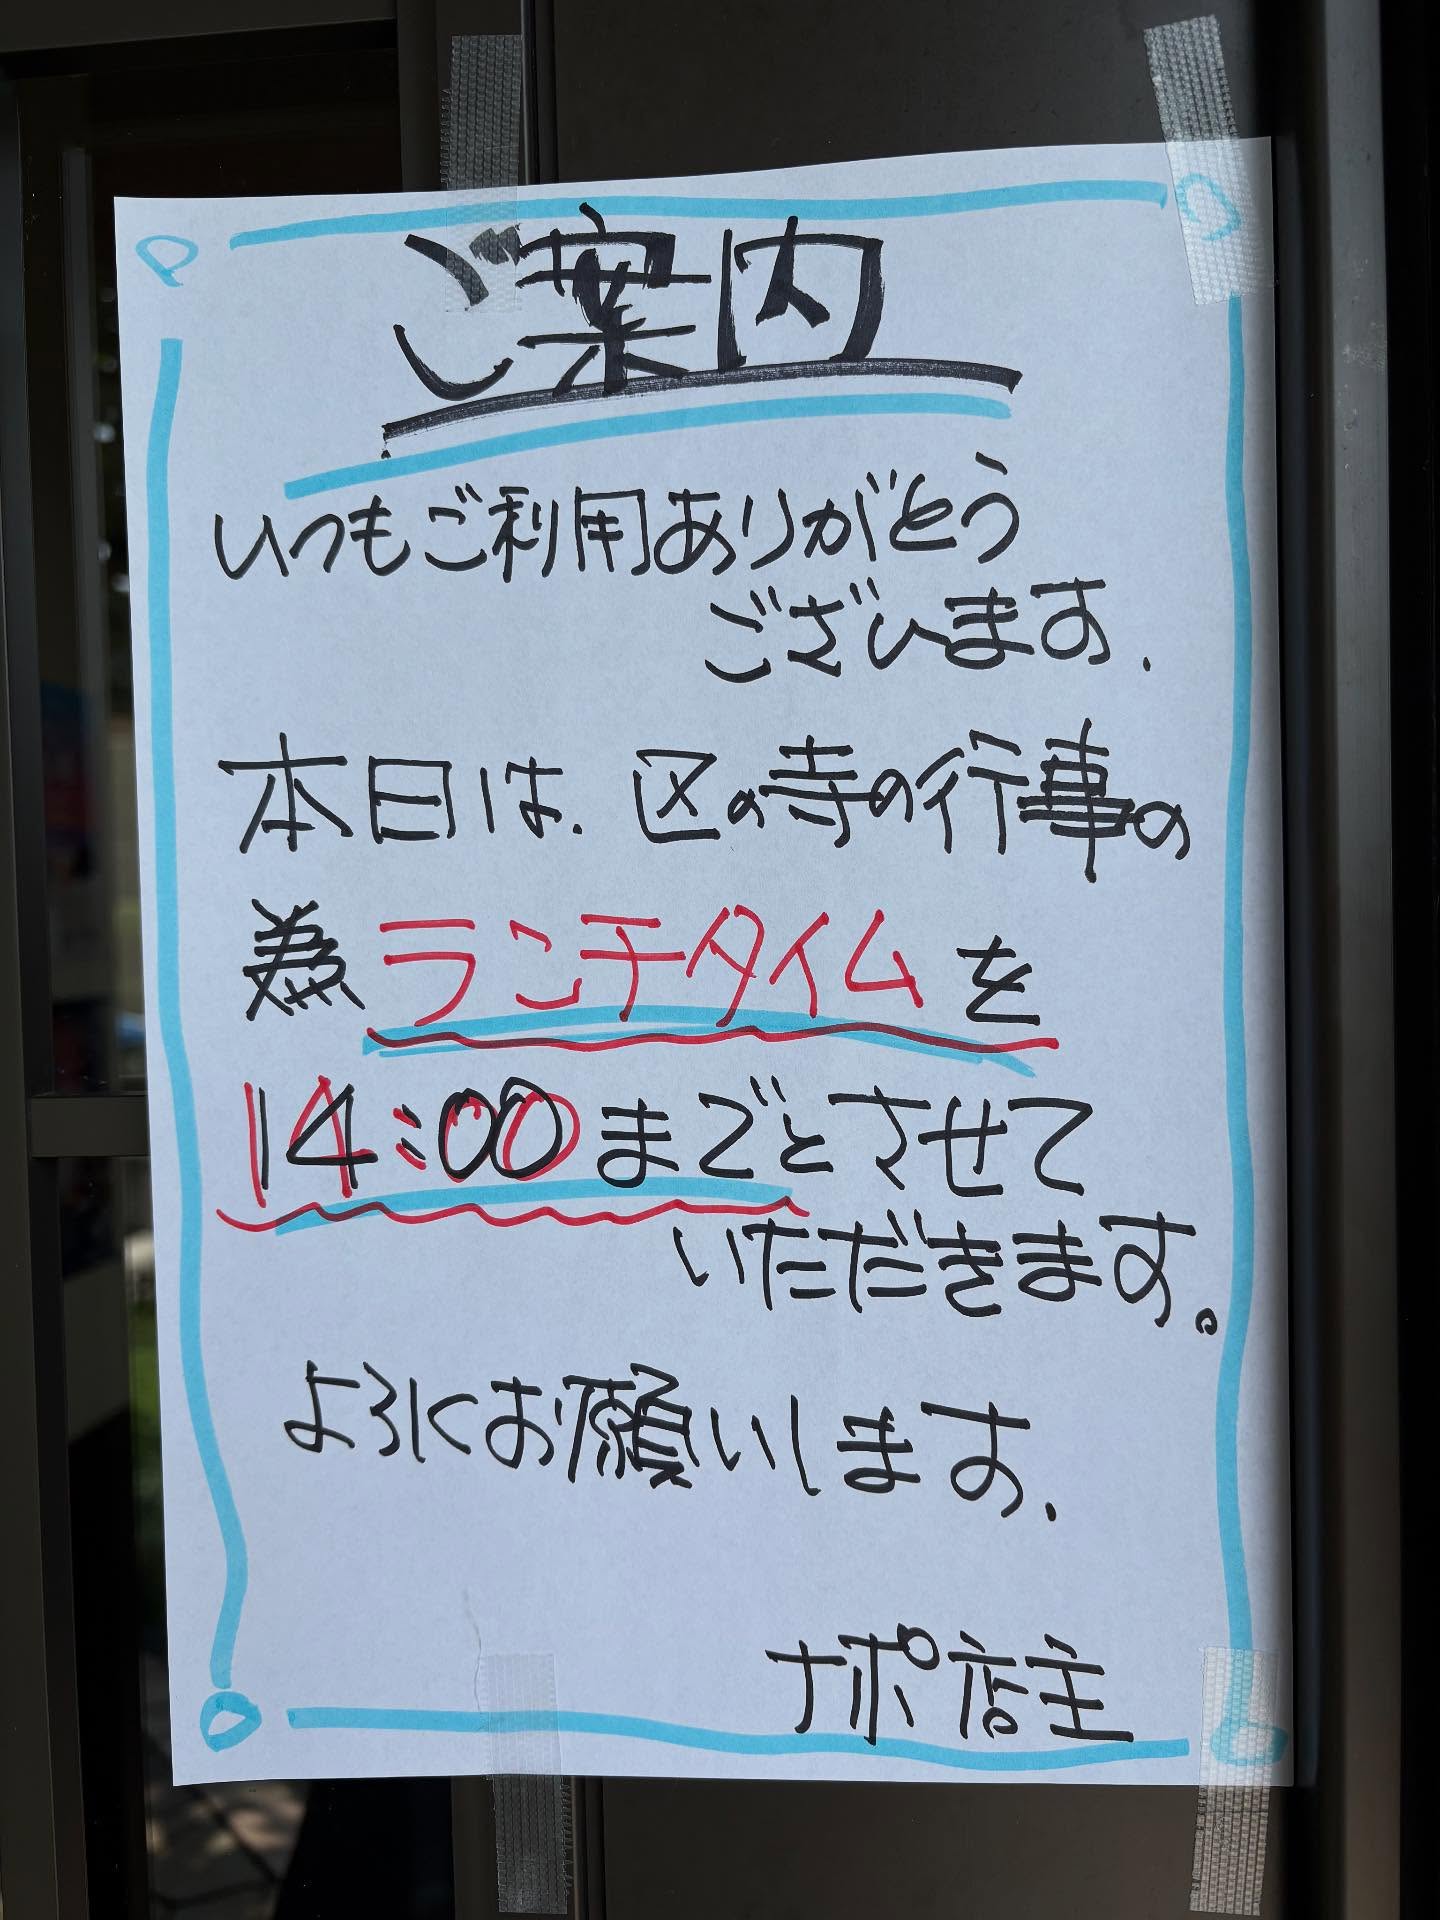 ご案内
いつもご利用ありがとう
ございます.
本日は.区の寺の行事の
為ランチタイムを
14:00までとさせて
いただきます。
よろしくお願いします.
ナポ店主